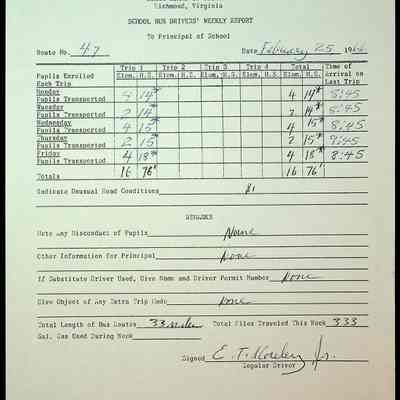 Richmond, Virginia
SCHOOL BUS DRIVERS' WEEKLY REPORT
To Principal of School
Route No. 47 Date February 25, 19
Trip 1 Trip 2 Trip 3 Trip 4 Total Time of
Pupils Enrolled Elem. H.S. Elem. H.S. Elem. H.S. Elem. H.S. Elem. H.S. Arrival on
Each Trip Last Trip
Monday
Pupils Transported 4 14* 4 14* 8:45
Tuesday
Pupils Transported 2 14* 2 14* 8:45
Wednesday
Pupils Transported 4 15* 4 15* 8:45
Thursday
Pupils Transported 2 15* 2 15* 8:45
Friday
Pupils Transported 4 18* 4 18* 8:45
Totals 16 76' 16 76'
Indicate Unusual Road Conditions
REMARKS
Note Any Misconduct of Pupils None
Other Information for Principal None
If Substitute Driver Used, Give Name and Driver Permit Number None
Give Object of Any Extra Trip Made None
Total Length of Bus Routes 33 miles Total Miles Traveled This Week 333
Gal. Gas Used During Week
Signed E. T. Jr.
Regular Driver